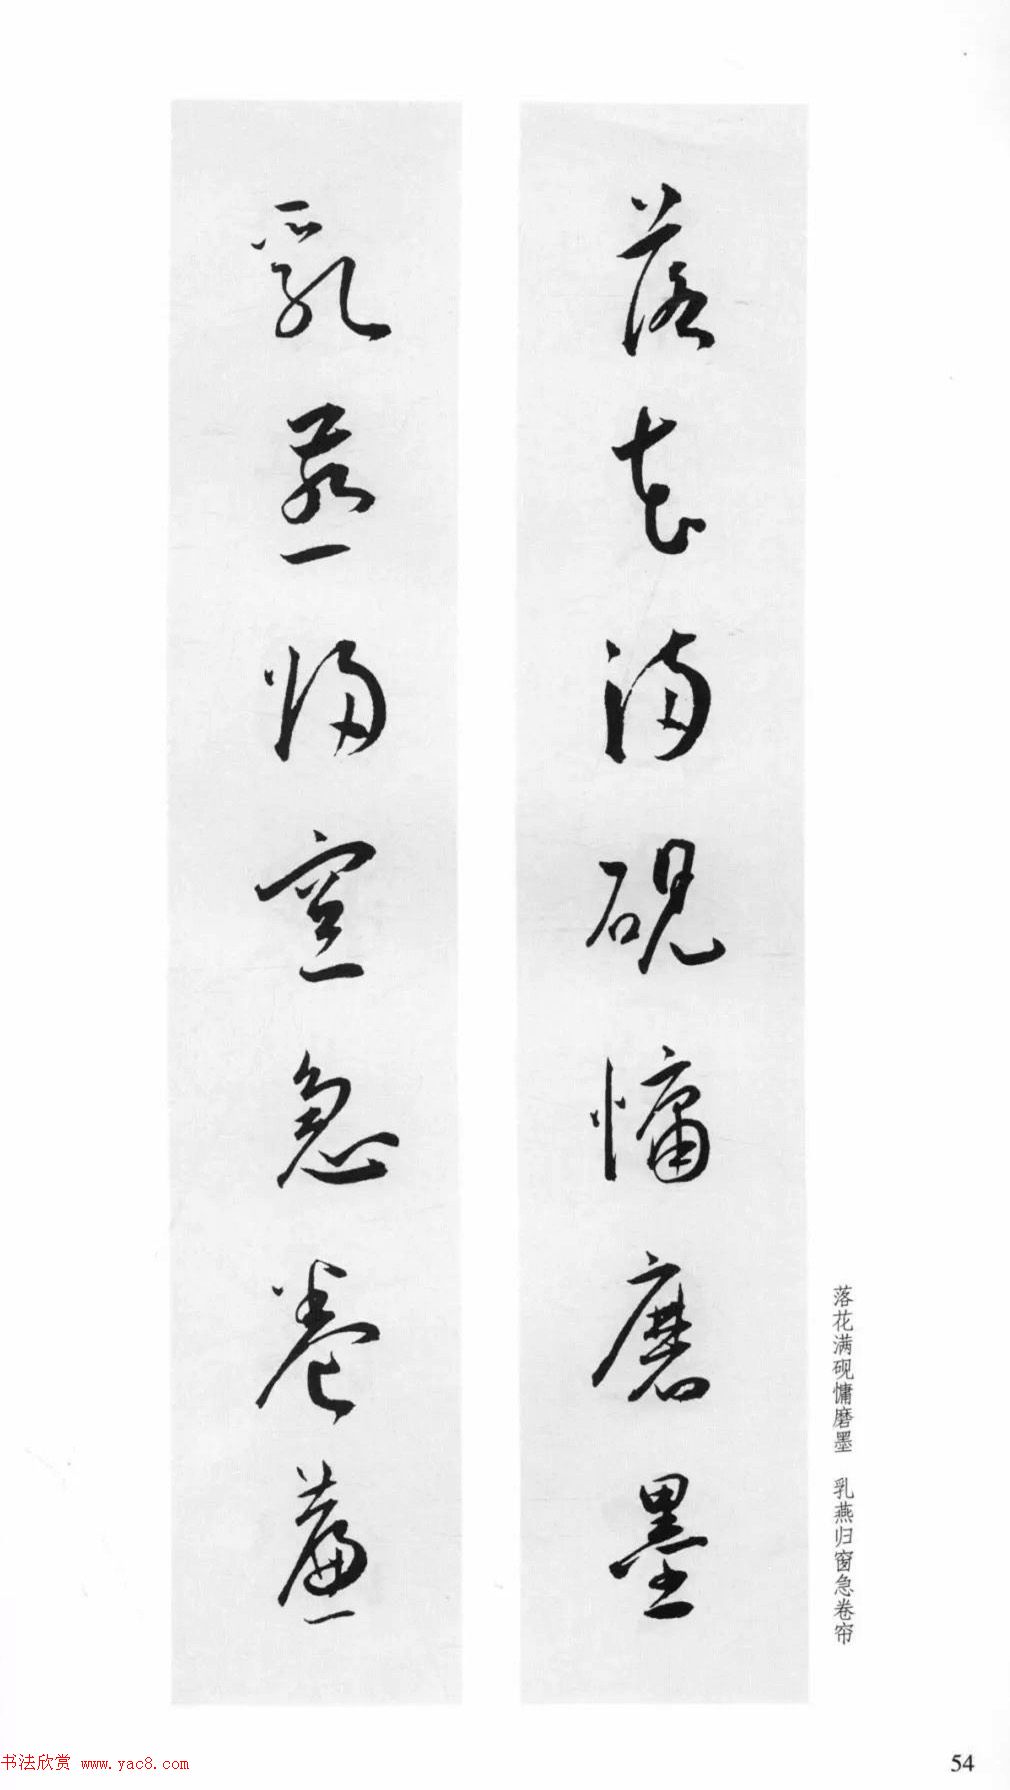 落花满砚慵磨墨
乳燕归窗急卷帘
落花满砚慵磨墨 乳燕归窗急卷帘
书法欣赏 www.yac8.com
54